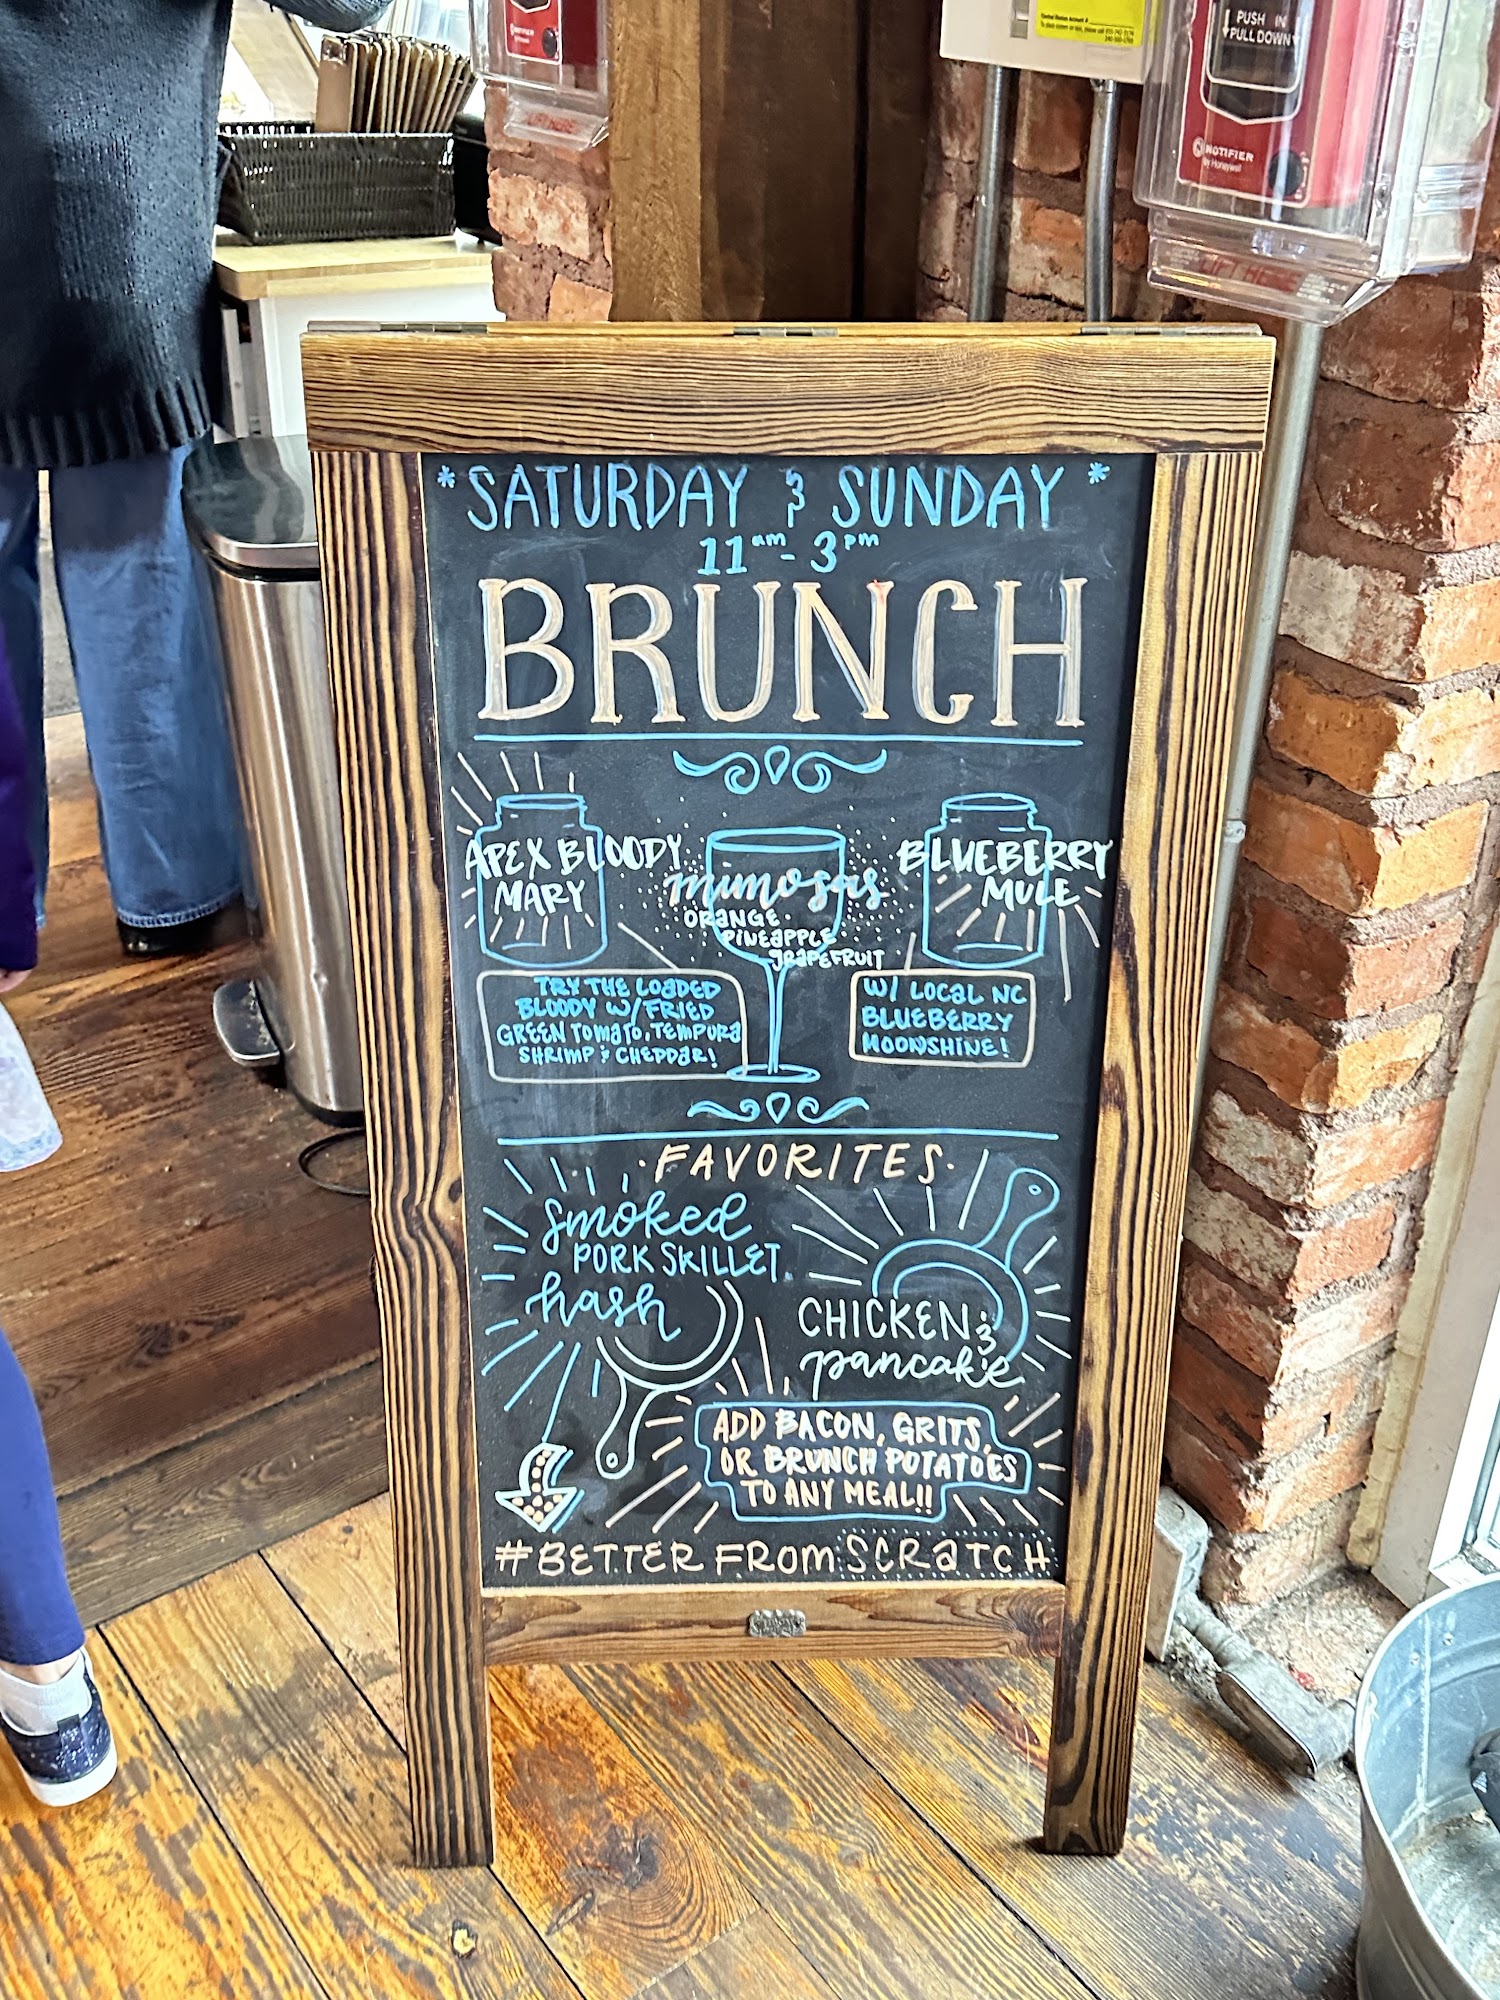 NOTIFIER
PUSH IN
PULL DOWN
NOTIFIER
by Honeywell
LIFT HERE
LIFT HERE
*SATURDAY & SUNDAY*
11am - 3pm
BRUNCH
APEX BLOODY
MARY
mimosas
ORANGE
PINEAPPLE
GRAPEFRUIT
BLUEBERRY
MULE
TRY THE LOADED
BLOODY W/ FRIED
GREEN TOMATO, TEMPURA
SHRIMP & CHEDDAR!
W/ LOCAL NC
BLUEBERRY
MOONSHINE!
·FAVORITES·
smoked
PORK SKILLET
hash
CHICKEN &
pancake
ADD BACON, GRITS,
OR BRUNCH POTATOES
TO ANY MEAL!!
#BETTER FROM SCRATCH